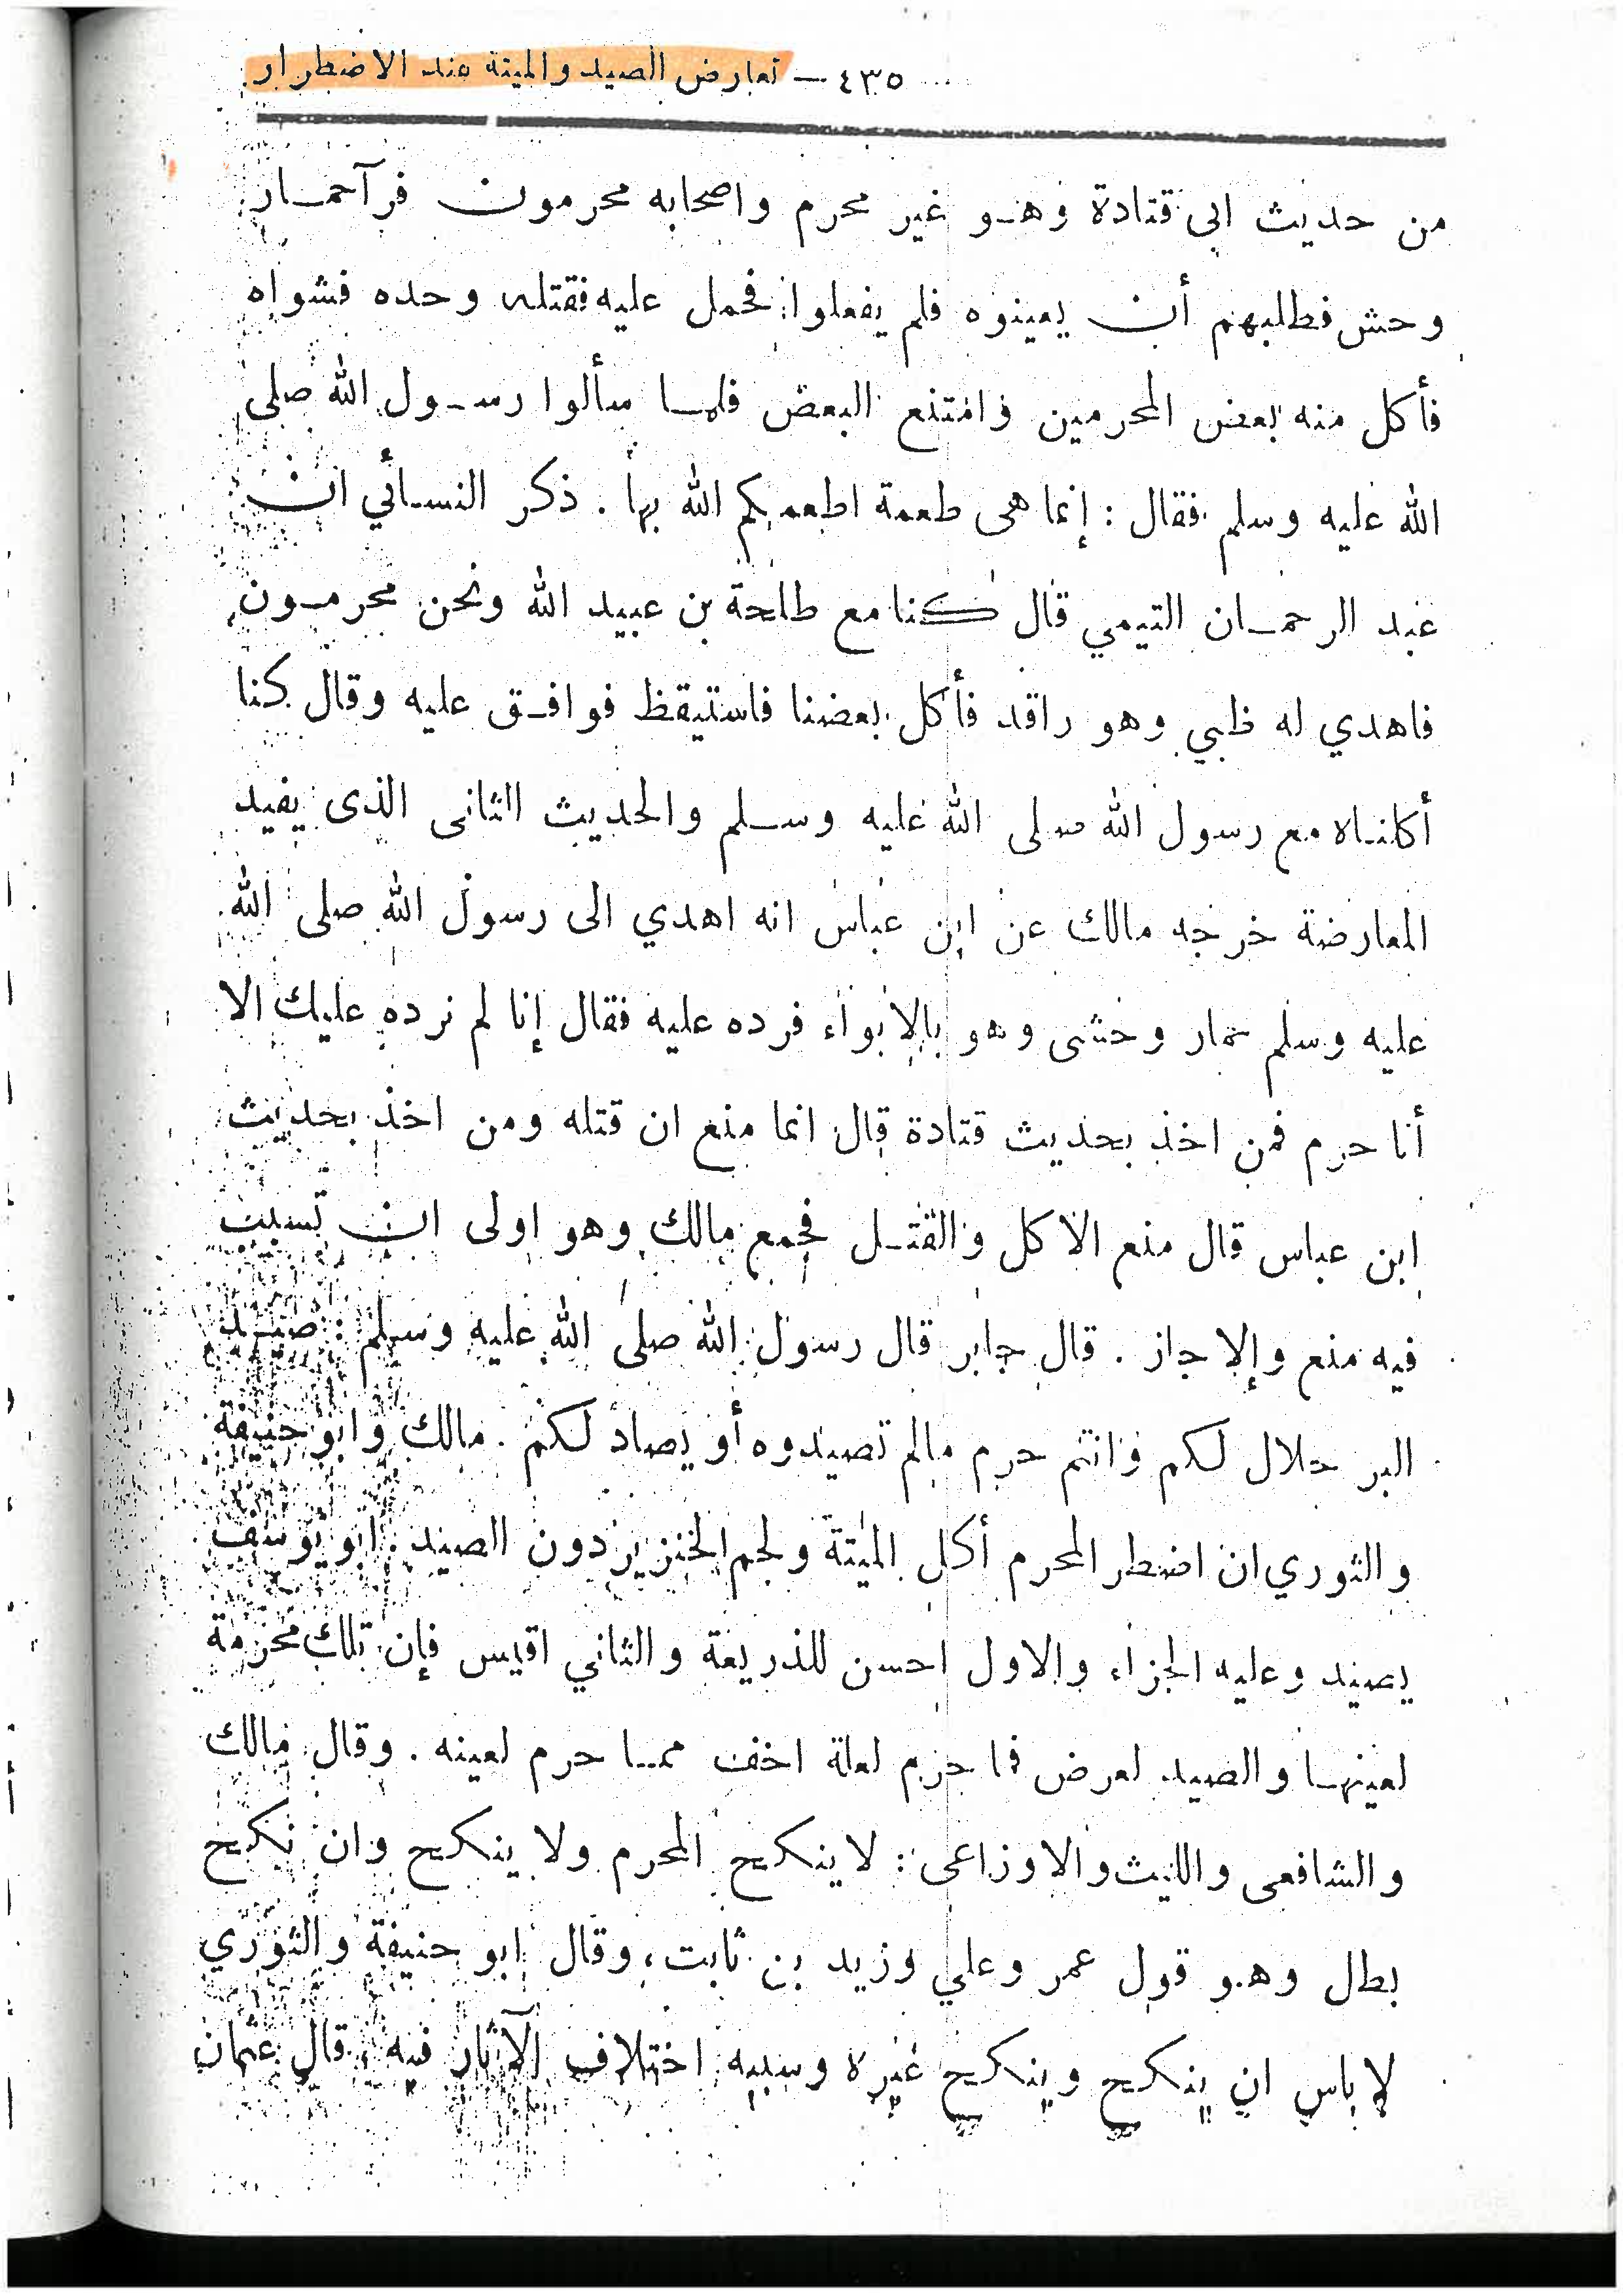 ٤٣٥ — تعارض الصيد والميتة عند الاضطرار
من حديث ابى قتادة وهو غير محرم واصحابه محرمون فرآ حمار
وحش فطلبهم أن يعينوه فلم يفعلوا فحمل عليه فقتله وحده فشواه
فأكل منه بعض المحرمين وامتنع البعض فلما سألوا رسول الله صلى
الله عليه وسلم فقال : إنما هى طعمة اطعمكم الله بها . ذكر النسائي ان
عبد الرحمان التيمي قال كنا مع طلحة بن عبيد الله ونحن محرمون
فاهدي له ظبي وهو راقد فأكل بعضنا فاستيقظ فوافق عليه وقال كنا
أكلناه مع رسول الله صلى الله عليه وسلم والحديث الثانى الذى يفيد
المعارضة خرجه مالك عن ابن عباس انه اهدي الى رسول الله صلى الله
عليه وسلم حمار وحشى وهو بالابواء فرده عليه فقال إنا لم نرده عليك الا
أنا حرم فمن اخذ بحديث قتادة قال انما منع ان قتله ومن اخذ بحديث
ابن عباس قال منع الاكل والقتل فجمع مالك وهو اولى ان تسبب
فيه منع وإلا جاز . قال جابر قال رسول الله صلى الله عليه وسلم : صيد
البر حلال لكم وانتم حرم مالم تصيدوه أو يصاد لكم . مالك وابو حنيفة
والثوري ان اضطر المحرم أكل الميتة ولحم الخنزير دون الصيد . ابو يوسف
يصيد وعليه الجزاء والاول احسن للذريعة والثاني اقيس فإن تلك محرمة
لعينها والصيد لعرض فما حرم لعلة اخف مما حرم لعينه . وقال مالك
والشافعى والليث والاوزاعى : لا ينكح المحرم ولا ينكح وان نكح
بطال وهو قول عمر وعلي وزيد بن ثابت، وقال ابو حنيفة والثوري
لا باس ان ينكح وينكح غيره وسببه اختلاف الآثار فيه ، قال عثمان